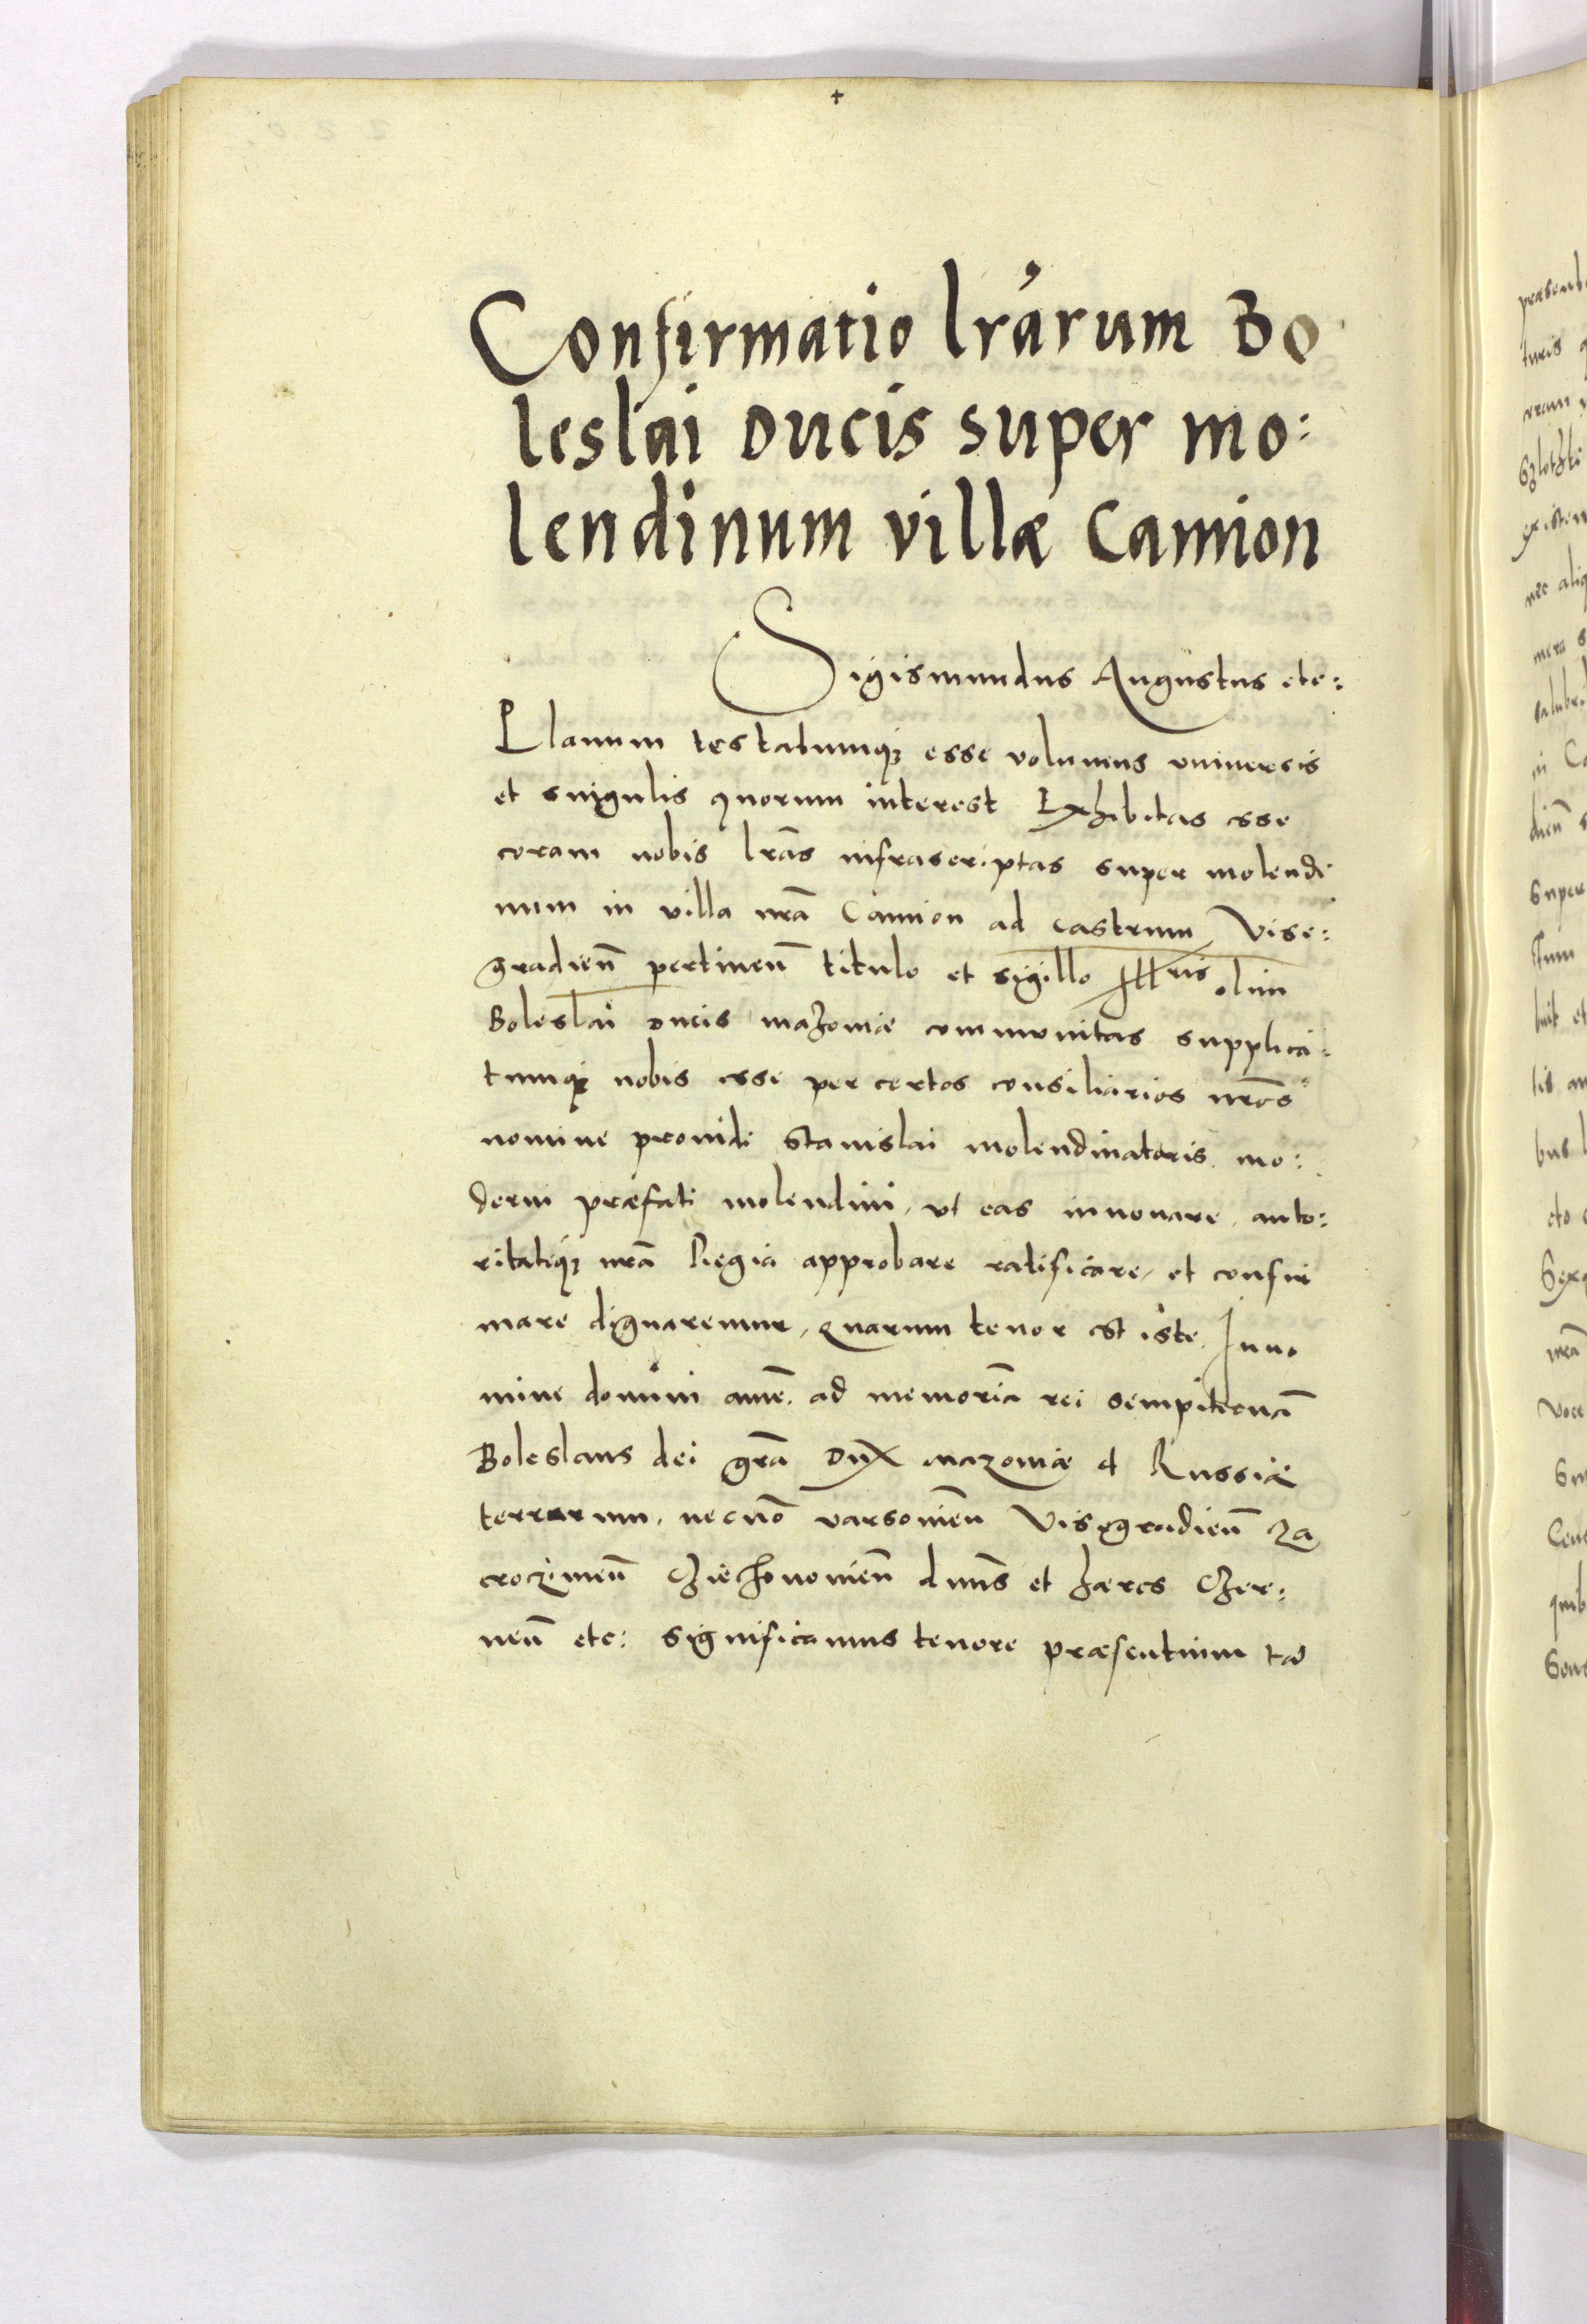 +
Confirmatio lrarum Bo
leslai Ducis super mo:
lendinum villæ Camion
Sigismundus Augustus etc:
Planum testatumq3 esse volumus vniuersis
et singulis quorum interest Exhibitas esse
coram nobis lrãs infrascriptas super molendi
num in villa nrã Camion ad castrum Vise:
gradieñ pertineñ titulo et sigillo Illris olim
Boleslai Ducis mazoniæ communitas supplica:
tumq3 nobis esse per certos consiliarios nrõs
nomine prouidi Stanislai molendinatoris mo:
derni præfati molendini, vt eas innouare, auto:
ritateq3 nrã Regia approbare ratificare, et confir
mare dignaremur, Quarum tenor est iste. In no
mine domini amẽ. ad memoriã rei sempiternã
Boleslaus dei grã Dux mazouiæ et Russiæ
terrarum, necnõ varsouieñ Visegradieñ Za
crozimeñ Cziechonouieñ dnũs et hæres Czer:
neñ etc: significamus tenore præsentium tã
præsenti
turis
existen
nec aliq
mera
salubr
in Ca
super
bus
voce